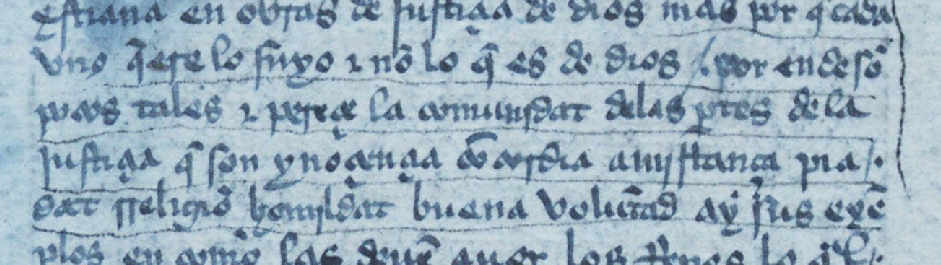 xp̃iana en obras de justiçia de dios mas por q̃ cada
vno q̃ere lo suyo ⁊ nõ lo q̃ es de dios / por ende sõ
pocos tales ⁊ pereçe la comunidat delas ptes de la
justiçia q̃ son ynoçençia cõcordia amistança pia
dat rreligiõ homildat buena volũtad ay sus exẽ
plos en como las deuẽ auer los